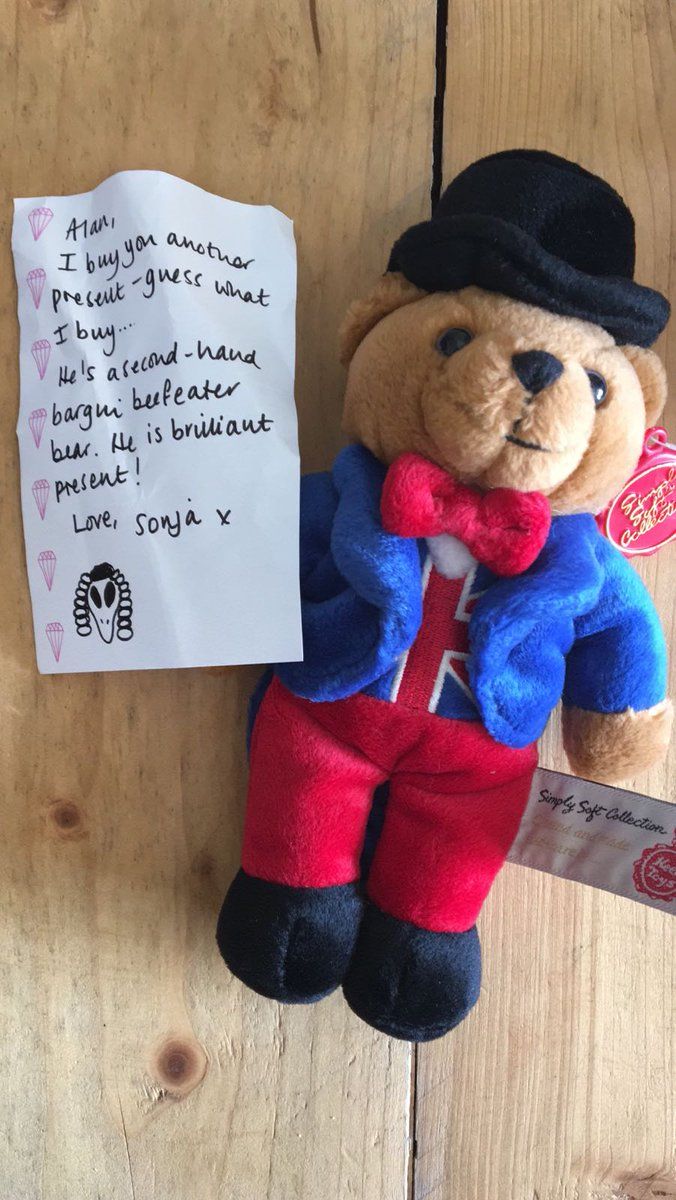 Alan,
I buy you another
present - guess what
I buy...
He's a second-hand
bargui beefeater
bear. He is brilliant
present!
Love, Sonja x
Simply
Soft
Collecti
Simply Soft Collection
Keel
Toys